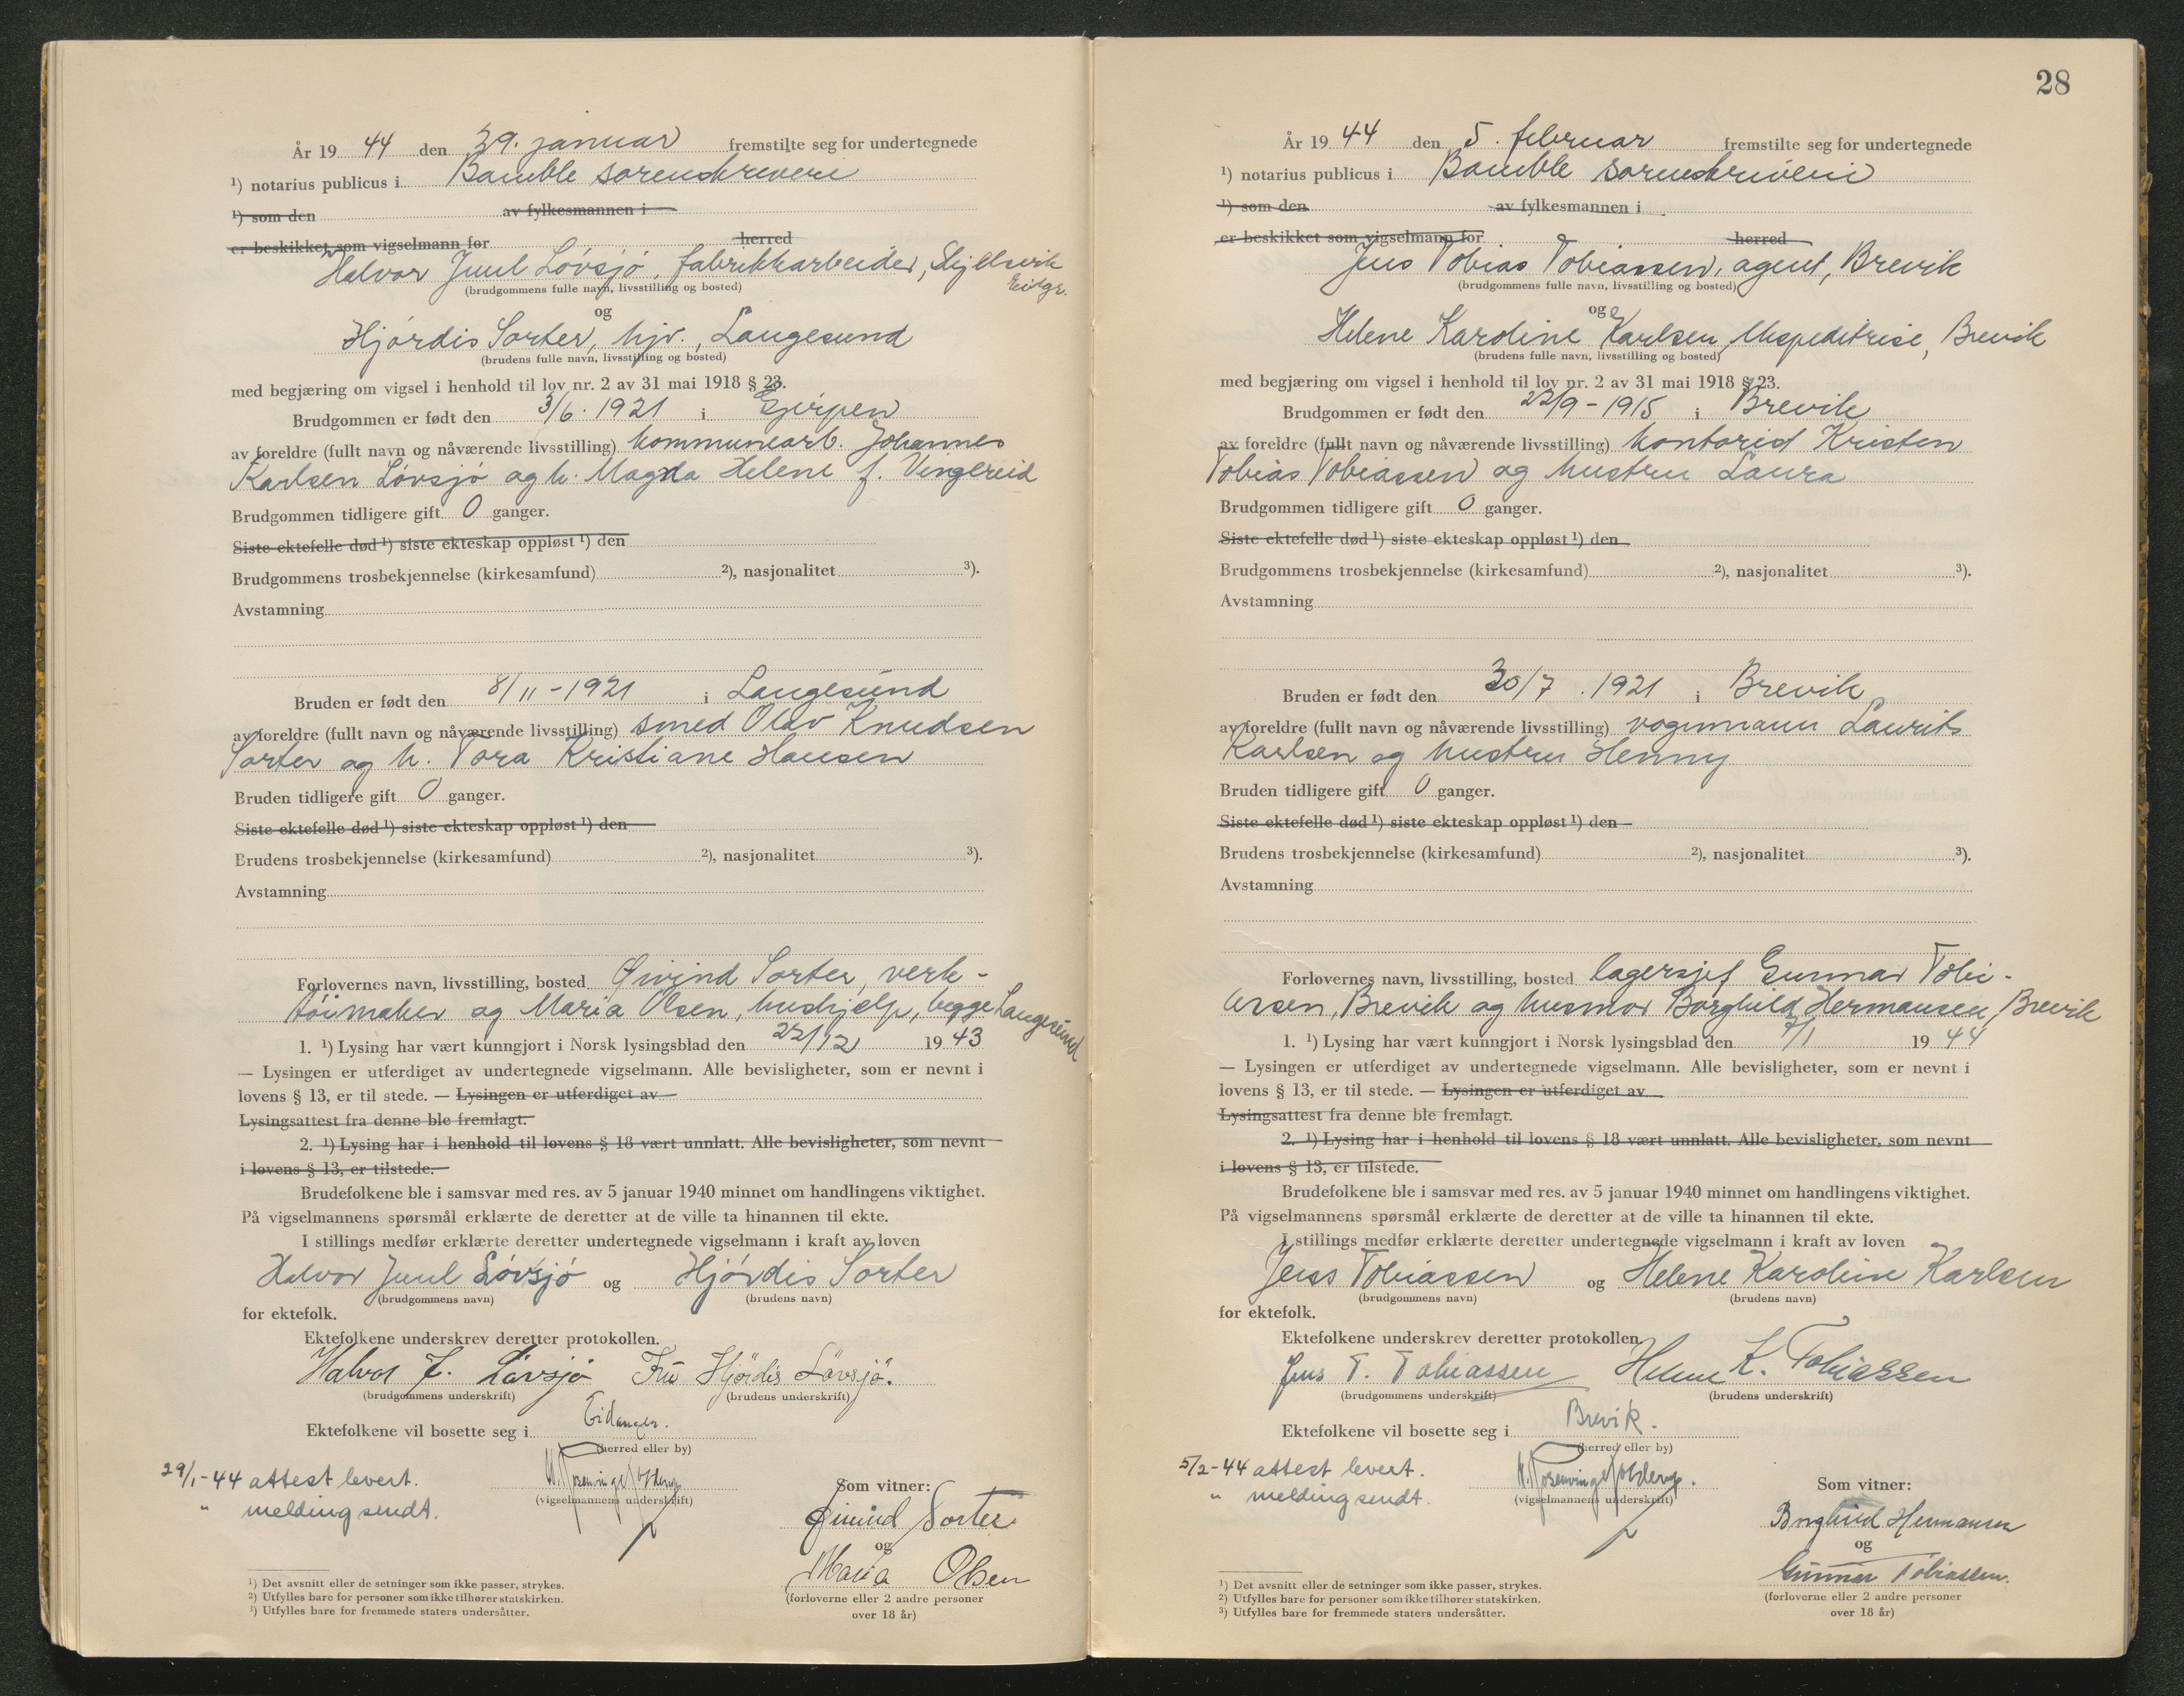 År 19 44 den 29. januar fremstilte seg for undertegnede
¹) notarius publicus i Bamble sorenskriveri
¹) som den av fylkesmannen i
er beskikket som vigselmann for herred
Halvor Juul Lövsjö, fabrikkarbeider, Skjelsvik
Eidgr.
(brudgommens fulle navn, livsstilling og bosted)
og
Hjördis Sorter, hjv., Langesund
(brudens fulle navn, livsstilling og bosted)
med begjæring om vigsel i henhold til lov nr. 2 av 31 mai 1918 § 23.
Brudgommen er født den 3/6. 1921 i Gjerpen
av foreldre (fullt navn og nåværende livsstilling) kommunearb. Johannes
Karlsen Lövsjö og h. Magda Helene f. Vingereid
Brudgommen tidligere gift 0 ganger.
Siste ektefelle død ¹) siste ekteskap oppløst ¹) den
Brudgommens trosbekjennelse (kirkesamfund) ²), nasjonalitet ³).
Avstamning
Bruden er født den 8/11-1921 i Langesund
av foreldre (fullt navn og nåværende livsstilling) smed Olav Knudsen
Sorter og h. Tora Kristiane Hansen
Bruden tidligere gift 0 ganger.
Siste ektefelle død ¹) siste ekteskap oppløst ¹) den
Brudens trosbekjennelse (kirkesamfund) ²), nasjonalitet ³).
Avstamning
Forlovernes navn, livsstilling, bosted Øivind Sorter, verk-
töimaker og Maria Olsen, hushjelp, begge Langesund
1. ¹) Lysing har vært kunngjort i Norsk lysingsblad den 22/12 19 43
— Lysingen er utferdiget av undertegnede vigselmann. Alle bevisligheter, som er nevnt i
lovens § 13, er til stede. — Lysingen er utferdiget av
Lysingsattest fra denne ble fremlagt.
2. ¹) Lysing har i henhold til lovens § 18 vært unnlatt. Alle bevisligheter, som nevnt
i lovens § 13, er tilstede.
Brudefolkene ble i samsvar med res. av 5 januar 1940 minnet om handlingens viktighet.
På vigselmannens spørsmål erklærte de deretter at de ville ta hinannen til ekte.
I stillings medfør erklærte deretter undertegnede vigselmann i kraft av loven
Halvor Juul Lövsjö og Hjördis Sorter
(brudgommens navn) (brudens navn)
for ektefolk.
Ektefolkene underskrev deretter protokollen.
Halvor J. Lövsjö Fru Hjördis Lövsjö.
(brudgommens underskrift) (brudens underskrift)
Ektefolkene vil bosette seg i Eidanger.
(herred eller by)
29/1-44 attest levert.
" melding sendt.
(vigselmannens underskrift)
Som vitner:
Øivind Sorter
og
Maria Olsen
(forloverne eller 2 andre personer
over 18 år)
¹) Det avsnitt eller de setninger som ikke passer, strykes.
²) Utfylles bare for personer som ikke tilhører statskirken.
³) Utfylles bare for fremmede staters undersåtter.
28
År 19 44 den 5. februar fremstilte seg for undertegnede
¹) notarius publicus i Bamble sorenskriveri
¹) som den av fylkesmannen i
er beskikket som vigselmann for herred
Jens Tobias Tobiassen, agent, Brevik
(brudgommens fulle navn, livsstilling og bosted)
og
Helene Karoline Karlsen, ekspeditrise, Brevik
(brudens fulle navn, livsstilling og bosted)
med begjæring om vigsel i henhold til lov nr. 2 av 31 mai 1918 § 23.
Brudgommen er født den 22/9-1915 i Brevik
av foreldre (fullt navn og nåværende livsstilling) kontorist Kristen
Tobias Tobiassen og hustru Laura
Brudgommen tidligere gift 0 ganger.
Siste ektefelle død ¹) siste ekteskap oppløst ¹) den
Brudgommens trosbekjennelse (kirkesamfund) ²), nasjonalitet ³).
Avstamning
Bruden er født den 30/7. 1921 i Brevik
av foreldre (fullt navn og nåværende livsstilling) vognmann Laurits
Karlsen og hustru Henny
Bruden tidligere gift 0 ganger.
Siste ektefelle død ¹) siste ekteskap oppløst ¹) den
Brudens trosbekjennelse (kirkesamfund) ²), nasjonalitet ³).
Avstamning
Forlovernes navn, livsstilling, bosted lagersjef Gunnar Tobi-
assen, Brevik og husmor Borghild Hermansen, Brevik
1. ¹) Lysing har vært kunngjort i Norsk lysingsblad den 7/1 19 44
— Lysingen er utferdiget av undertegnede vigselmann. Alle bevisligheter, som er nevnt i
lovens § 13, er til stede. — Lysingen er utferdiget av
Lysingsattest fra denne ble fremlagt.
2. ¹) Lysing har i henhold til lovens § 18 vært unnlatt. Alle bevisligheter, som nevnt
i lovens § 13, er tilstede.
Brudefolkene ble i samsvar med res. av 5 januar 1940 minnet om handlingens viktighet.
På vigselmannens spørsmål erklærte de deretter at de ville ta hinannen til ekte.
I stillings medfør erklærte deretter undertegnede vigselmann i kraft av loven
Jens Tobiassen og Helene Karoline Karlsen
(brudgommens navn) (brudens navn)
for ektefolk.
Ektefolkene underskrev deretter protokollen
Jens T. Tobiassen Helene K. Tobiassen
(brudgommens underskrift) (brudens underskrift)
Ektefolkene vil bosette seg i Brevik.
(herred eller by)
5/2-44 attest levert.
" melding sendt.
(vigselmannens underskrift)
Som vitner:
Borghild Hermansen
og
Gunnar Tobiassen.
(forloverne eller 2 andre personer
over 18 år)
¹) Det avsnitt eller de setninger som ikke passer, strykes.
²) Utfylles bare for personer som ikke tilhører statskirken.
³) Utfylles bare for fremmede staters undersåtter.